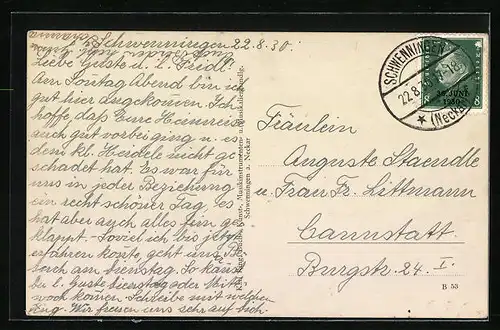 Schwenningen 22.8.30.
Liebe Guste u. l. Friedl!
Am Sontag Abend bin ich
gut hier angekommen. Ich
hoffe, daß Eure Heimreise
auch gut vorbeiging u. es
dem kl. Heidele nicht ge
schadet hat. Es war für
uns in jeder Beziehung
ein recht schöner Tag. Es
hat aber auch alles fein ge
klappt. - Soviel ich bis jetzt
erfahren konte, geht uns
am Dienstag. So kanns
du l. Guste Dienstag oder Mitt
woch kommen. Schreibe mit welchem
Zug. Wir freuen uns sehr auf dich.
Musikinstrumenten- u. Musikalienhandlg.
Schwenningen a. Neckar
SCHWENNINGEN
22.8.
★ (Neckar)
30. JUNI
1930
8
Fräulein
Auguste Staendle
u. Frau Fr. Littmann
Cannstatt
Burgstr. 24 I.
B 53